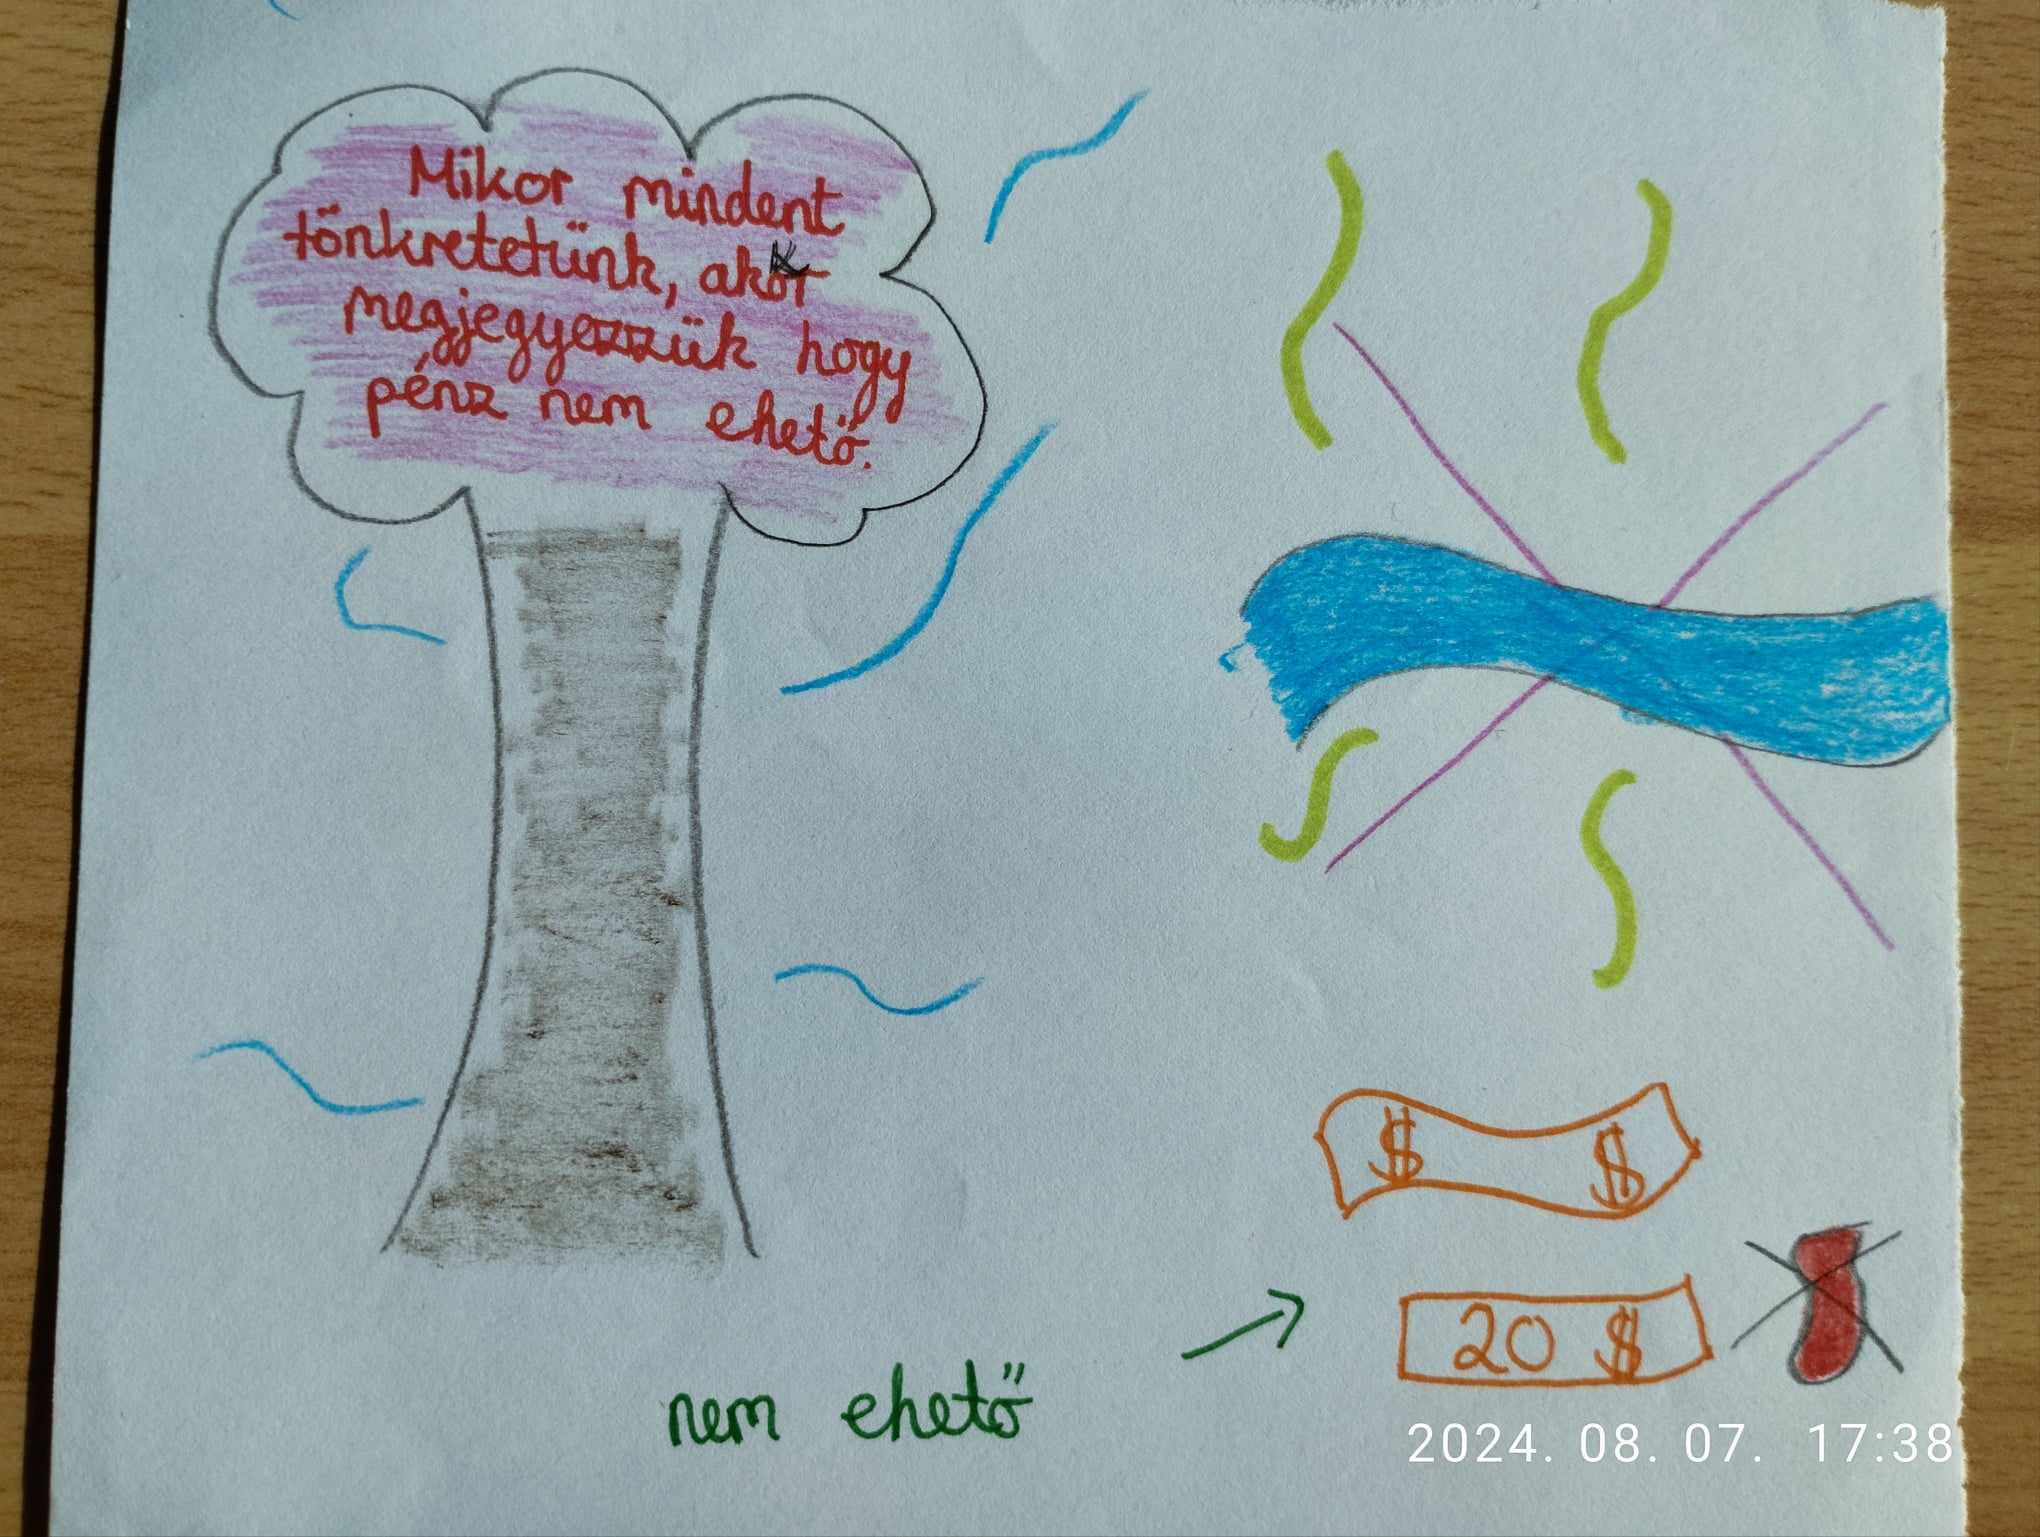 Mikor mindent
tönkretetünk, akkor
megjegyezzük hogy
pénz nem ehető.
$ $
20 $
nem ehető
2024. 08. 07. 17:38